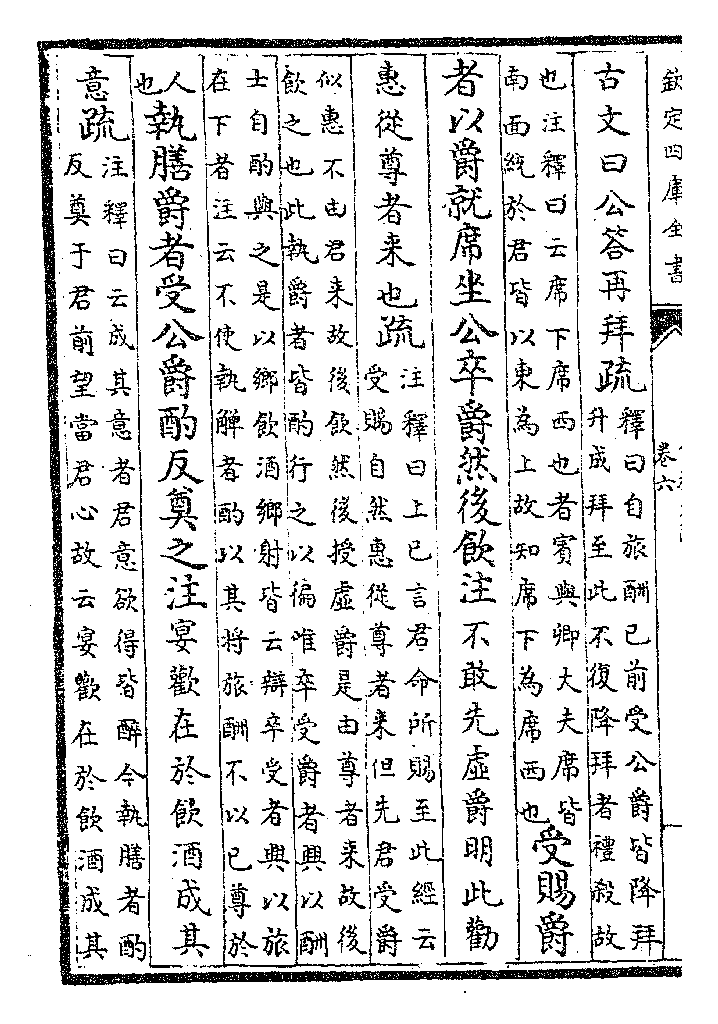 欽定四庫全書
卷六
古文曰公答再拜疏
釋曰自旅酬已前受公爵皆降拜
升成拜至此不復降拜者禮殺故
也注釋曰云席下席西也者賓與卿大夫席皆
南面統於君皆以東為上故知席下為席西也
受賜爵
者以爵就席坐公卒爵然後飲注不敢先虛爵明此勸
惠從尊者来也疏
注釋曰上已言君命所賜至此經云
受賜自然惠從尊者来但先君受爵
似惠不由君来故後飲然後授虛爵是由尊者来故後
飲之也此執爵者皆酌行之以徧唯卒受爵者興以酬
士自酌與之是以鄉飲酒鄉射皆云辯卒受者興以旅
在下者注云不使執觶者酌以其將旅酬不以已尊於
人
也
執膳爵者受公爵酌反奠之注宴歡在於飲酒成其
意疏
注釋曰云成其意者君意欲得皆醉今執膳者酌
反奠于君前望當君心故云宴歡在於飲酒成其